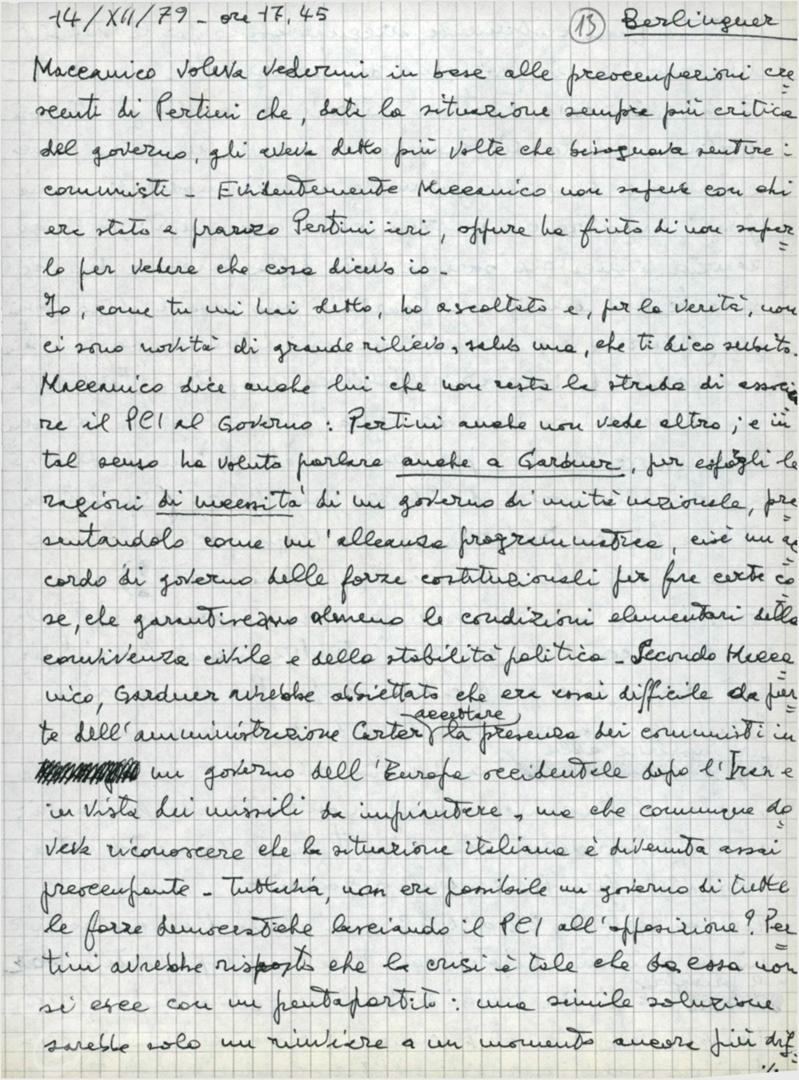 14/XII/79 - ore 17,45 (13) Berlinguer
Maccanico voleva vedermi in base alle preoccupazioni cre=
scenti di Pertini che, data la situazione sempre più critica
del governo, gli aveva detto più volte che bisognava sentire i
comunisti - Evidentemente Maccanico non sapeva con chi
era stato a pranzo Pertini ieri, oppure ha finto di non saper=
lo per vedere che cosa dicevo io -
Io, come tu mi hai detto, ho ascoltato e, per la verità, non
ci sono novità di grande rilievo, salvo una, che ti dico subito.
Maccanico dice anche lui che non resta la strada di associa=
re il PCI al Governo: Pertini anche non vede altro; e in
tal senso ha voluto parlare anche a Gardner, per esporgli le
ragioni di necessità di un governo di unità nazionale, pre=
sentandolo come un'alleanza programmatica, cioè un ac=
cordo di governo delle forze costituzionali per fare certe co=
se, che garantiscano almeno le condizioni elementari della
convivenza civile e della stabilità politica - Secondo Macca=
nico, Gardner avrebbe obbiettato che era assai difficile da par=
te dell'amministrazione Carter accettare la presenza dei comunisti in
un governo dell'Europa occidentale dopo l'Iran e
in vista dei missili da impiantare, ma che comunque do=
veva riconoscere che la situazione italiana è divenuta assai
preoccupante - Tuttavia, non era possibile un governo di tutte
le forze democratiche lasciando il PCI all'opposizione? Per=
tini avrebbe risposto che la crisi è tale che da essa non
si esce con un pentapartito: una simile soluzione
sarebbe solo un rinviare a un momento ancora più dif=
./.